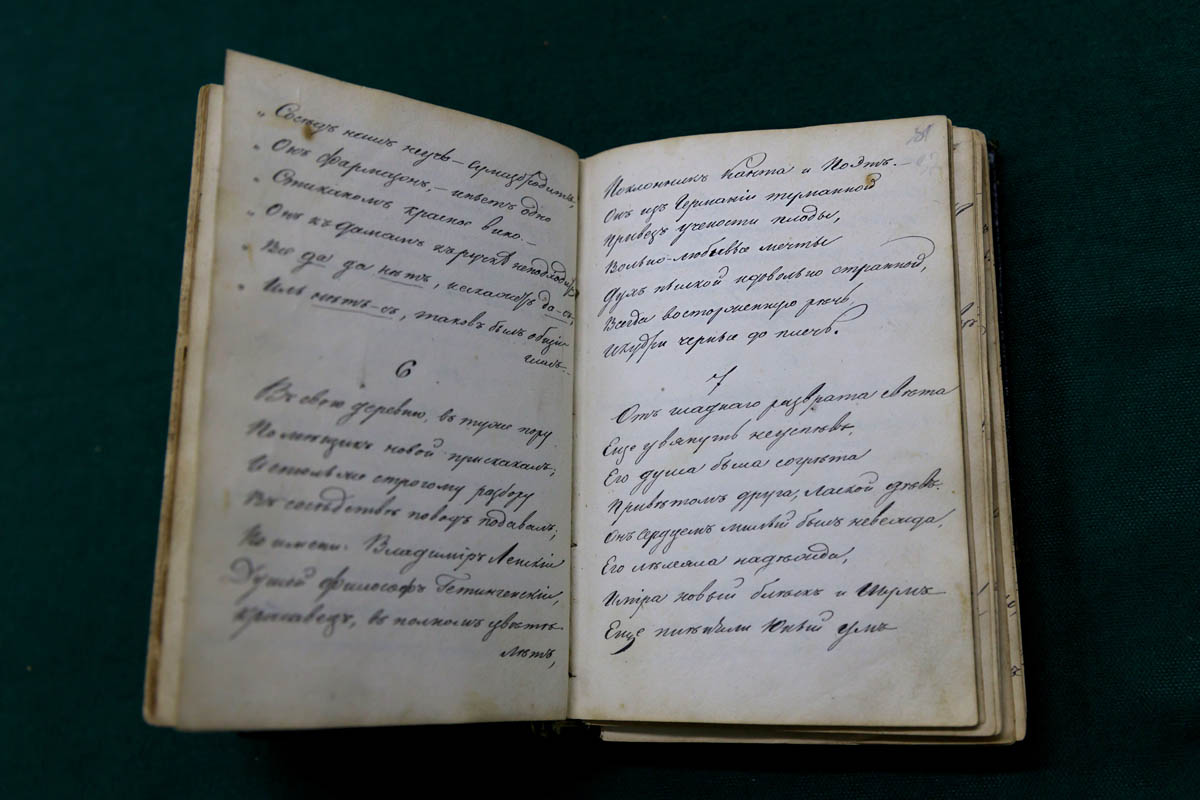 „ Сосѣдъ нашъ неучь – сумазбродитъ,
„ Онъ фармазонъ, – пьетъ одно
„ Стаканомъ красное вино. –
„ Онъ къ дамамъ къ ручкѣ неподходитъ
„ Все да да нѣтъ, нескажетъ да-съ,
„ Иль нѣтъ-съ, таковъ былъ общій
гласъ. –
6
Въ свою деревню, въ туже пору
Помѣщикъ новой прискакалъ,
И столь же строгому разбору
Въ сосѣдствѣ поводъ подавалъ,
По имени: Владиміръ Ленскій
Душой философъ Гетингенскій,
Красавецъ, въ полномъ цвѣтѣ
лѣтъ,
31
Поклонникъ Канта и Поэтъ. –
Онъ изъ Германіи туманной
Привезъ учености плоды,
Вольно-любивые мечты
Духъ пылкой и довольно странной,
Всегда восторженную рѣчь,
И кудри черные до плечь.
7
Отъ хладнаго разврата свѣта
Еще увянуть неуспѣвъ,
Его душа была согрѣта
Привѣтомъ друга, Лаской дѣвъ.
Онъ сердцемъ милый былъ невежда,
Его лѣлеяла надѣжда,
И міра новый блѣскъ и Шумъ
Еще плѣняли Юный умъ